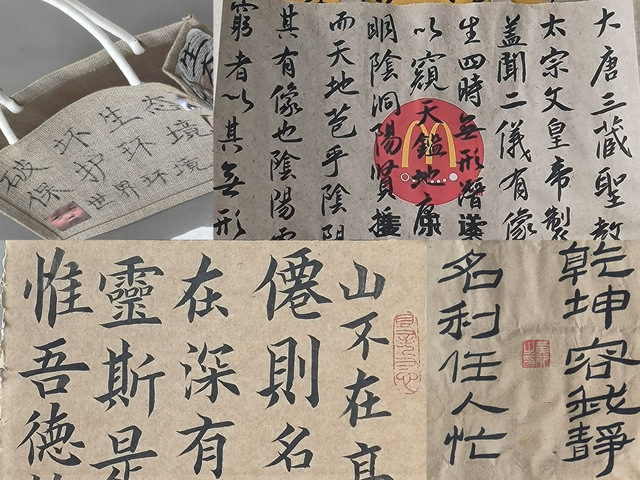 破坏生态
保护环境
世界环境
大唐三藏聖教
太宗文皇帝製
蓋聞二儀有像
生四時無形潛
以窺天鑑地庸
明陰洞陽賢
而天地苞乎陰陽
其有像也陰陽
窮者以其無形
山不在高
僊則名
在深有
靈斯是
惟吾德
乾坤容我靜
名利任人忙